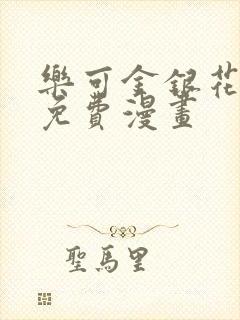 樂可金銀花
免費漫畫
聖馬里